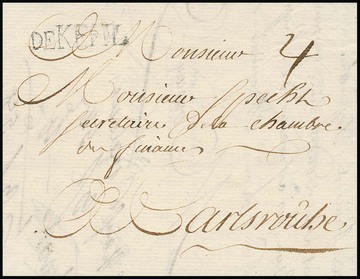 DE KEHL
A Monsieur 4
Monsieur Specht
secretaire de la chambre
des finances
A Carlsrouhe